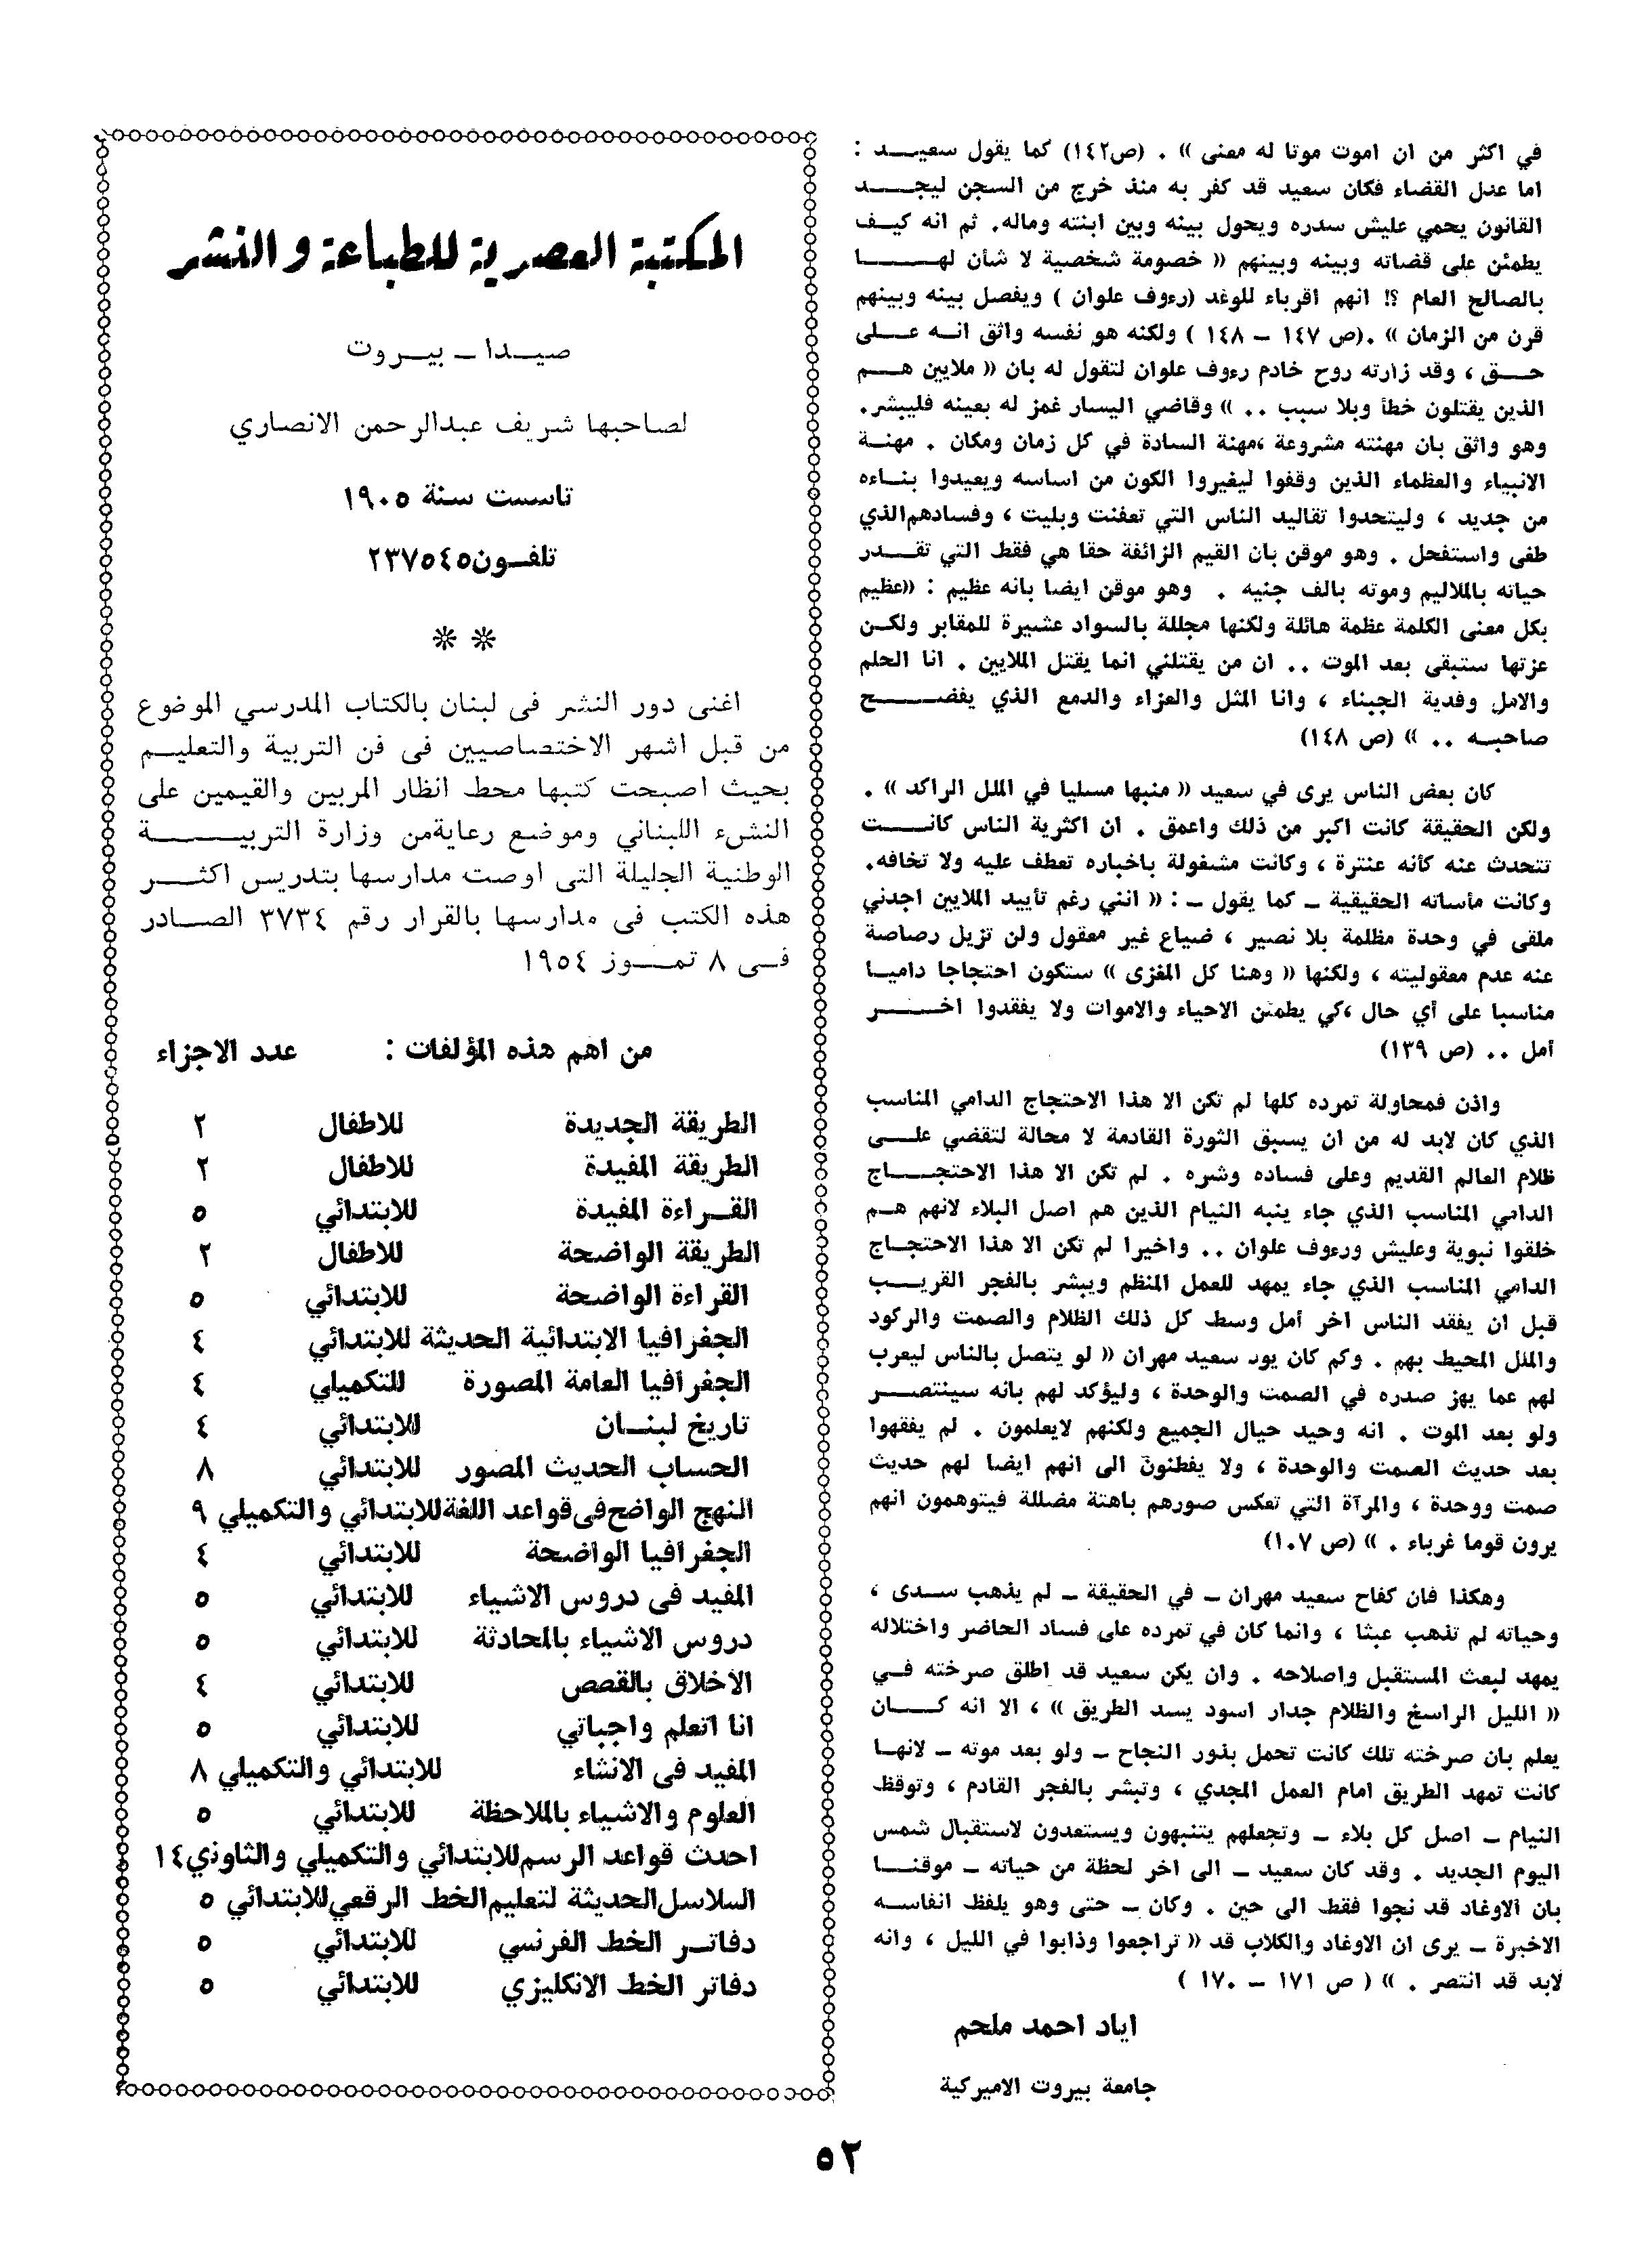 في اكثر من ان اموت موتا له معنى » . (ص١٤٢) كما يقول سعيـــد :
اما عدل القضاء فكان سعيد قد كفر به منذ خرج من السجن ليجـــد
القانون يحمي عليش سدره ويحول بينه وبين ابنته وماله. ثم انه كيـف
يطمئن على قضاته وبينه وبينهم « خصومة شخصية لا شأن لهـــا
بالصالح العام ؟! انهم اقرباء للوغد (رءوف علوان ) ويفصل بينه وبينهم
قرن من الزمان » .(ص ١٤٧ – ١٤٨ ) ولكنه هو نفسه واثق انـه عـلى
حـق ، وقد زارته روح خادم رءوف علوان لتقول له بان « ملايين هـم
الذين يقتلون خطأ وبلا سبب .. » وقاضي اليسار غمز له بعينه فليبشر.
وهو واثق بان مهنته مشروعة ،مهنة السادة في كل زمان ومكان . مهنـة
الانبياء والعظماء الذين وقفوا ليغيروا الكون من اساسه ويعيدوا بنـاءه
من جديد ، وليتحدوا تقاليد الناس التي تعفنت وبليت ، وفسادهم الذي
طغى واستفحل . وهو موقن بان القيم الزائفة حقا هي فقط التي تقـدر
حياته بالملاليم وموته بالف جنيه . وهو موقن ايضا بانه عظيم : «عظيم
بكل معنى الكلمة عظمة هائلة ولكنها مجللة بالسواد عشيرة للمقابر ولكـن
عزتها ستبقى بعد الموت .. ان من يقتلني انما يقتل الملايين . انا الحلم
والامل وفدية الجبناء ، وانا المثل والعزاء والدمع الذي يفضـــح
صاحبـه .. » (ص ١٤٨)
كان بعض الناس يرى في سعيد « منبها مسليا في الملل الراكد » .
ولكن الحقيقة كانت اكبر من ذلك واعمق . ان اكثرية الناس كانـــت
تتحدث عنه كأنه عنترة ، وكانت مشغولة باخباره تعطف عليه ولا تخافه.
وكانت مأساته الحقيقية – كما يقول – : « انني رغم تأييد الملايين اجدني
ملقى في وحدة مظلمة بلا نصير ، ضياع غير معقول ولن تزيل رصاصة
عنه عدم معقوليته ، ولكنها « وهنا كل المغزى » ستكون احتجاجا داميـا
مناسبا على أي حال ،كي يطمئن الاحياء والاموات ولا يفقدوا اخـــر
أمل .. (ص ١٣٩)
واذن فمحاولة تمرده كلها لم تكن الا هذا الاحتجاج الدامي المناسب
الذي كان لابد له من ان يسبق الثورة القادمة لا محالة لتقضي علـى
ظلام العالم القديم وعلى فساده وشره . لم تكن الا هذا الاحتجـــاج
الدامي المناسب الذي جاء ينبه النيام الذين هم اصل البلاء لانهم هـم
خلقوا نبوية وعليش ورءوف علوان .. واخيرا لم تكن الا هذا الاحتجـاج
الدامي المناسب الذي جاء يمهد للعمل المنظم ويبشر بالفجر القريـب
قبل ان يفقد الناس اخر أمل وسط كل ذلك الظلام والصمت والركود
والملل المحيط بهم . وكم كان يود سعيد مهران « لو يتصل بالناس ليعرب
لهم عما يهز صدره في الصمت والوحدة ، وليؤكد لهم بانه سينتصـــر
ولو بعد الموت . انه وحيد حيال الجميع ولكنهم لايعلمون . لم يفقهوا
بعد حديث الصمت والوحدة ، ولا يفطنون الى انهم ايضا لهم حديث
صمت ووحدة ، والمرآة التي تعكس صورهم باهتة مضللة فيتوهمون انهم
يرون قوما غرباء . » (ص ١٠٧)
وهكذا فان كفاح سعيد مهران – في الحقيقة – لم يذهب سـدى ،
وحياته لم تذهب عبثا ، وانما كان في تمرده على فساد الحاضر واختلاله
يمهد لبعث المستقبل واصلاحه . وان يكن سعيد قد اطلق صرخته فـي
« الليل الراسخ والظلام جدار اسود يسد الطريق » ، الا انه كـــان
يعلم بان صرخته تلك كانت تحمل بذور النجاح – ولو بعد موته – لانهـا
كانت تمهد الطريق امام العمل المجدي ، وتبشر بالفجر القادم ، وتوقظ
النيام – اصل كل بلاء – وتجعلهم يتنبهون ويستعدون لاستقبال شمس
اليوم الجديد . وقد كان سعيد – الى اخر لحظة من حياته – موقنـا
بان الاوغاد قد نجوا فقط الى حين . وكان – حتى وهو يلفظ انفاسـه
الاخيرة – يرى ان الاوغاد والكلاب قد « تراجعوا وذابوا في الليل ، وانه
لابد قد انتصر . » ( ص ١٧١ – ١٧٠ )
اياد احمد ملحم
جامعة بيروت الاميركية
المكتبة العصرية للطباعة والنشر
صيـدا – بيـروت
لصاحبها شريف عبدالرحمن الانصاري
تاسست سنة ١٩٠٥
تلفـون٢٣٧٥٤٥
* *
اغنى دور النشر فى لبنان بالكتاب المدرسي الموضوع
من قبل اشهر الاختصاصيين فى فن التربية والتعليـم
بحيث اصبحت كتبها محط انظار المربين والقيمين على
النشء اللبناني وموضع رعايةمن وزارة التربيـــة
الوطنية الجليلة التى اوصت مدارسها بتدريس اكثـر
هذه الكتب فى مدارسها بالقرار رقم ٣٧٣٤ الصـادر
فـى ٨ تمـوز ١٩٥٤
من اهم هذه المؤلفات : عدد الاجزاء
الطريقة الجديدة للاطفال ٢
الطريقة المفيدة للاطفال ٢
القـراءة المفيدة للابتدائي ٥
الطريقة الواضحة للاطفال ٢
القراءة الواضحة للابتدائي ٥
الجغرافيا الابتدائية الحديثة للابتدائي ٤
الجغرافيا العامة المصورة للتكميلي ٤
تاريخ لبنـان للابتدائي ٤
الحساب الحديث المصور للابتدائي ٨
النهج الواضح فى قواعد اللغة للابتدائي والتكميلي ٩
الجغرافيا الواضحة للابتدائي ٤
المفيد فى دروس الاشياء للابتدائي ٥
دروس الاشياء بالمحادثة للابتدائي ٥
الاخلاق بالقصص للابتدائي ٤
انا اتعلم واجباتي للابتدائي ٥
المفيد فى الانشاء للابتدائي والتكميلي ٨
العلوم والاشياء بالملاحظة للابتدائي ٥
احدث قواعد الرسم للابتدائي والتكميلي والثاوني ١٤
السلاسل الحديثة لتعليم الخط الرقعي للابتدائي ٥
دفاتـر الخط الفرنسي للابتدائي ٥
دفاتر الخط الانكليزي للابتدائي ٥
٥٢